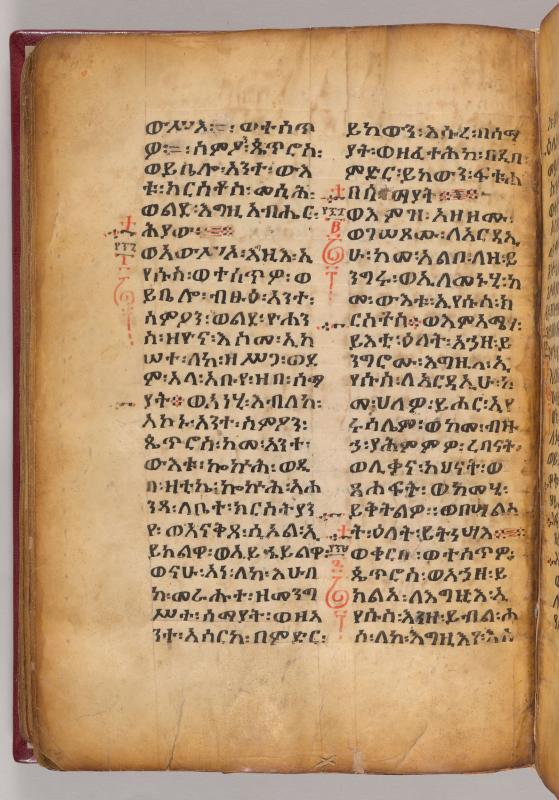 ውሥአ፡ ወተሰጥ
ዎ፡ ስምዖን፡ጴጥሮስ፡
ወይቤሎ፡አንተ፡ውእ
ቱ፡ክርስቶስ፡መሲሕ፡
ወልደ፡እግዚአብሔር፡
ሕያው፡
ወአውሥአ፡እግዚእ፡ኢ
የሱስ፡ወተሰጥዎ፡ወ
ይቤሎ፡ብፁዕ፡አንተ፡
ስምዖን፡ወልደ፡ዮሐን
ስ፡ዘዮና፡እስመ፡ኢከ
ሠተ፡ለከ፡ዘሥጋ፡ወደ
ም፡አላ፡አቡየ፡ዘበ፡ሰማ
ያት፡ወአነሂ፡እብለከ፡
አኮኑ፡አንተ፡ስምዖን፡
ጴጥሮስ፡ከመ፡አንተ፡
ውእቱ፡ኰኵሕ፡ወዲ
በ፡ዛቲ፡ኰኵሕ፡አሐ
ንጻ፡ለቤተ፡ክርስትያን
የ፡ወአናቅጸ፡ሲኦል፡ኢ
ይክልዋ፡ወኢይኄይልዋ፡
ወናሁ፡አነ፡ለከ፡እሁበ
ከ፡መራሑተ፡ዘመንግ
ሥተ፡ሰማያት፡ወዘአ
ንተ፡አሰርከ፡በምድር፡
ይከውን፡እሱረ፡በሰማ
ያት፡ወዘፈታሕከ፡በዲበ
ምድር፡ይከውን፡ፍቱሐ
በሰማያት፡
ወእምዝ፡አዘዘሙ፡
ወገሠጾሙ፡ለአርዳኢ
ሁ፡ከመ፡አልቦ፡ለዘ፡ይ
ንግሩ፡ወኢለመኑሂ፡ከ
መ፡ውእቱ፡ኢየሱስ፡ክ
ርስቶስ፡ወእምአሜሃ፡
ይእቲ፡ዕለት፡አኀዘ፡ይ
ንግሮሙ፡እግዚእ፡ኢ
የሱስ፡ለአርዳኢሁ፡ከ
መ፡ሀለዎ፡ይሑር፡ኢየ
ሩሳሌም፡ወከመ፡ብዙ
ኃ፡ያሐምምዎ፡ረበናት፡
ወሊቃነ፡ካህናት፡ወ
ጸሐፍት፡ወከመሂ፡
ይቀትልዎ፡ወበሣልስ
ት፡ዕለት፡ይትነሣእ፡
ወቀርበ፡ወተሰጥዎ፡
ጴጥሮስ፡ወአኀዘ፡ይ
ክልኦ፡ለእግዚእ፡ኢ
የሱስ፡እንዘ፡ይብል፡ሐ
ስ፡ለከ፡እግዚእየ፡